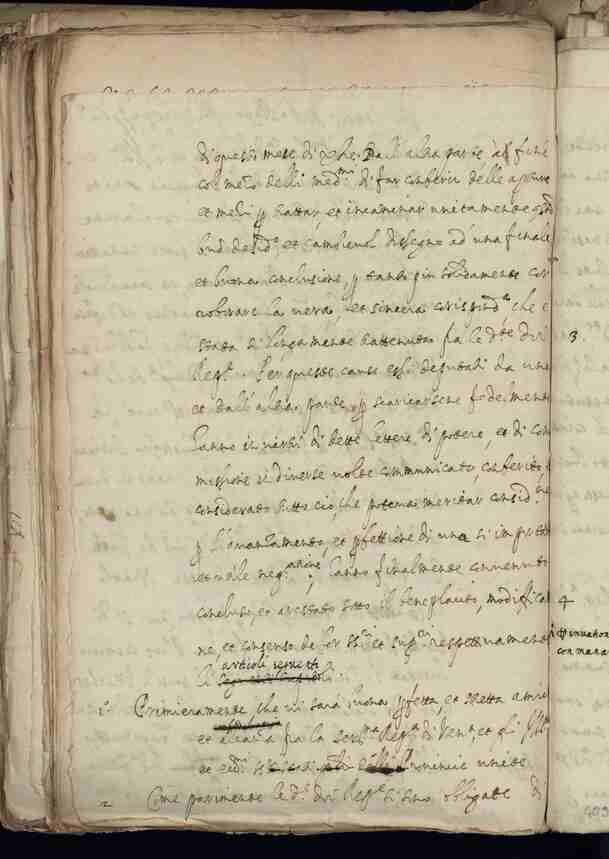 di questo mese di xbre. Dall'altra parte, al fine
col mezo delli med.mi di far conferir delle aperture
et mezi p trattar, et incaminar unitamente
et lambievol disegno ad una finale
et buona conclusione, p tanto più solidamente cor
roborare la vera, et sincera corrispond.a che è
stata sì longamente trattenuta fra le d.te due
Rep.e. Per queste cause essi deputati da una
et dall'altra parte, p scaricarsene fedelmente
hanno in virtù di dette lettere, di potere, et di com
missione si diverse volte communicato, conferito,
considerato tutto ciò, che poteva meritar consid.ne
p l'avanzamento, et pfettione di una sì importante
neg.atione; hanno finalmente convenuto
concluso, et arrestato sotto il beneplacito, modificat
ne, et consenso de lor SS.ri et Sup.ri respettivamente
li articoli seguenti
1. Primieramente, che vi sarà buona pfetta, et stretta amic
et alleanza fra la Ser.ma Rep.ca di Ven.a, et gli
Provincie unite
2 Come parimente le d.e due Rep.e si sono obligate di
3.
4
con mana